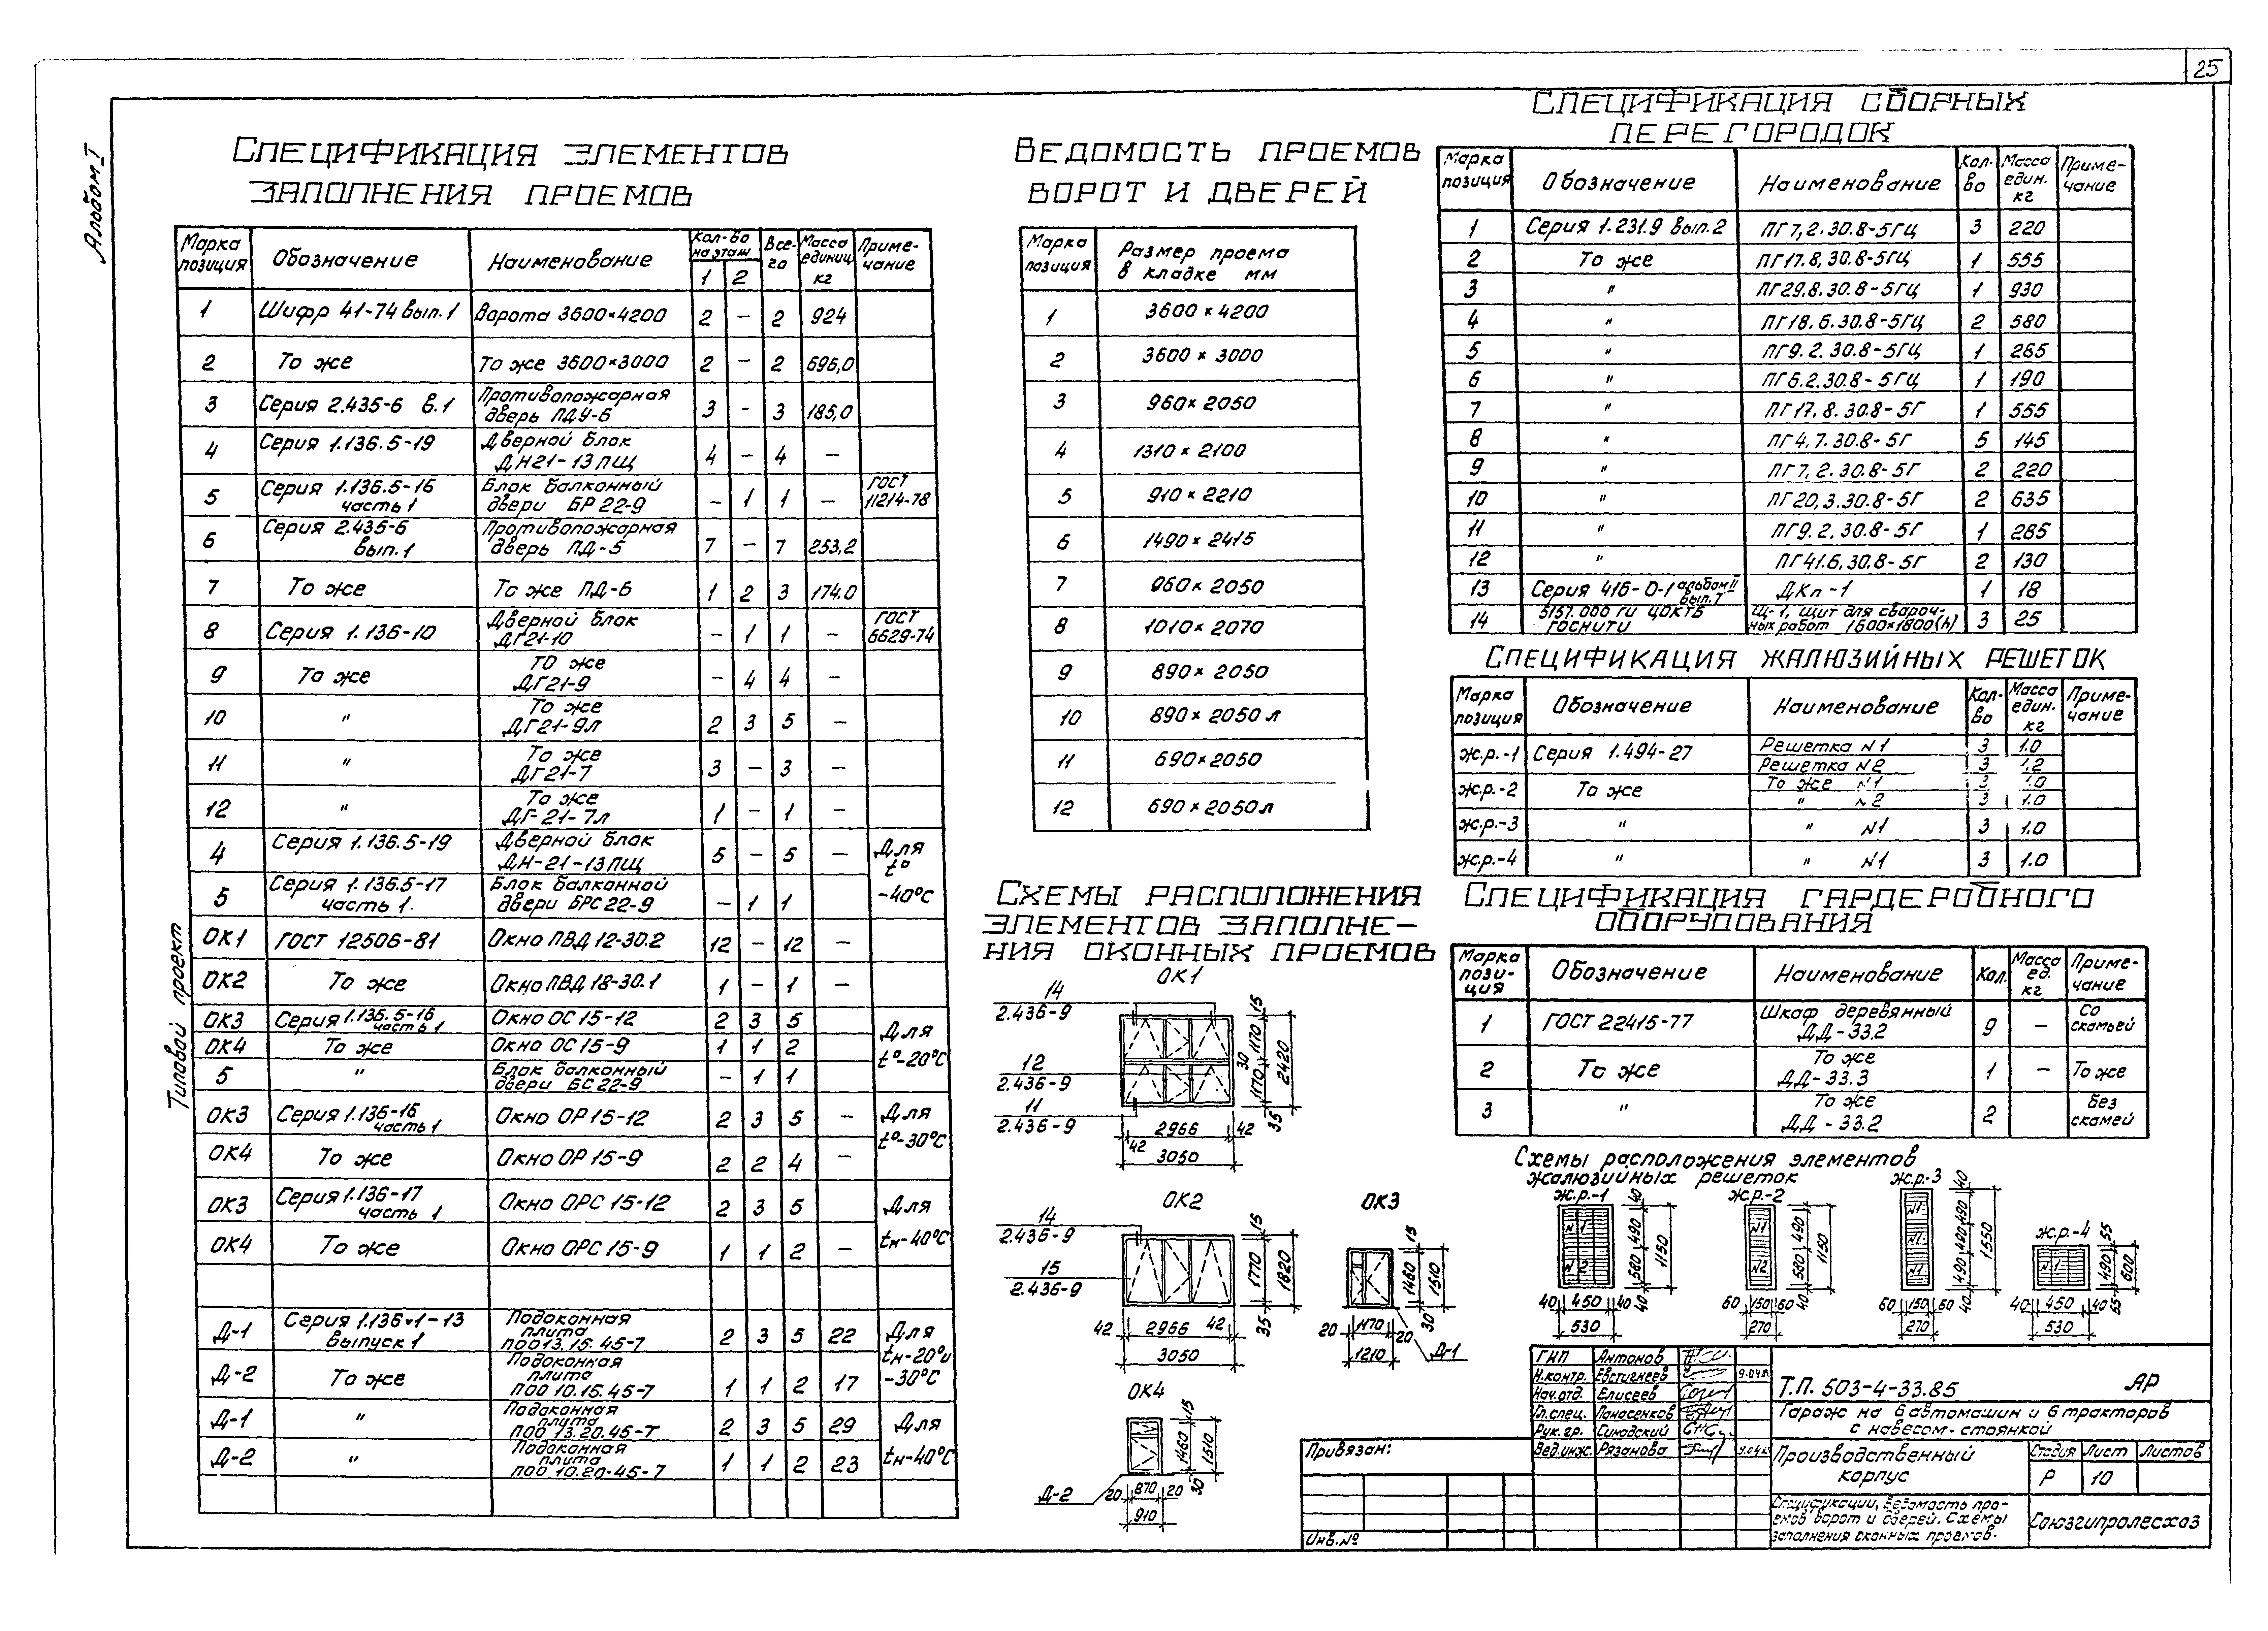 25
Альбом I
Типовой проект
Спецификация элементов
заполнения проемов
Марка позиция | Обозначение | Наименование | Кол-во на этаж 1 2 | Всего | Масса единиц кг | Примечание
1 | Шифр 41-74 вып.1 | Ворота 3600×4200 | 2 | – | 2 | 924
2 | То же | То же 3600×3000 | 2 | – | 2 | 696,0
3 | Серия 2.435-6 в.1 | Противопожарная дверь ПДУ-6 | 3 | - | 3 | 185,0
4 | Серия 1.136.5-19 | Дверной блок ДН21-13ПЩ | 4 | – | 4 | –
5 | Серия 1.136.5-16 часть 1 | Блок балконный двери БР 22-9 | – | 1 | 1 | – | ГОСТ 11214-78
6 | Серия 2.435-6 вып.1 | Противопожарная дверь ПД-5 | 7 | – | 7 | 253,2
7 | То же | То же ПД-6 | 1 | 2 | 3 | 174,0
8 | Серия 1.136-10 | Дверной блок ДГ21-10 | – | 1 | 1 | – | ГОСТ 6629-74
9 | То же | То же ДГ21-9 | – | 4 | 4 | –
10 | " | То же ДГ21-9л | 2 | 3 | 5 | –
11 | " | То же ДГ21-7 | 3 | – | 3 | –
12 | " | То же ДГ-21-7л | 1 | – | 1 | –
4 | Серия 1.136.5-19 | Дверной блок ДН-21-13ПЩ | 5 | – | 5 | – | Для t° -40°С
5 | Серия 1.136.5-17 часть 1. | Блок балконной двери БРС 22-9 | – | 1 | 1
ОК1 | ГОСТ 12506-81 | Окно ПВД 12-30.2 | 12 | – | 12 | –
ОК2 | То же | Окно ПВД 18-30.1 | 1 | – | 1 | –
ОК3 | Серия 1.136.5-16 часть 1 | Окно ОС 15-12 | 2 | 3 | 5 | Для t°-20°С
ОК4 | То же | Окно ОС 15-9 | 1 | 1 | 2
5 | " | Блок балконный двери БС 22-9 | – | 1 | 1
ОК3 | Серия 1.136-16 часть 1 | Окно ОР 15-12 | 2 | 3 | 5 | – | Для t°-30°С
ОК4 | То же | Окно ОР 15-9 | 2 | 2 | 4 | –
ОК3 | Серия 1.136-17 часть 1 | Окно ОРС 15-12 | 2 | 3 | 5 | Для tн-40°С
ОК4 | То же | Окно ОРС 15-9 | 1 | 1 | 2 | –
Д-1 | Серия 1.136.1-13 выпуск 1 | Подоконная плита ПОО 13.15.45-Т | 2 | 3 | 5 | 22 | Для tн-20° и -30°С
Д-2 | То же | Подоконная плита ПОО 10.15.45-Т | 1 | 1 | 2 | 17
Д-1 | " | Подоконная плита ПОО 13.20.45-Т | 2 | 3 | 5 | 29 | Для tн-40°С
Д-2 | " | Подоконная плита ПОО 10.20-45-Т | 1 | 1 | 2 | 23
Ведомость проемов
ворот и дверей
Марка позиция | Размер проема в кладке мм
1 | 3600×4200
2 | 3600×3000
3 | 960×2050
4 | 1310×2100
5 | 910×2210
6 | 1490×2415
7 | 960×2050
8 | 1010×2070
9 | 890×2050
10 | 890×2050л
11 | 690×2050
12 | 690×2050л
Схемы расположения
элементов заполне-
ния оконных проемов
ОК1
14
2.436-9
12
2.436-9
11
2.436-9
15
1170
30
1170
2420
35
42
2966
42
3050
ОК2
14
2.436-9
15
2.436-9
15
1770
1820
35
42
2966
42
3050
ОК3
15
1460
1510
30
20
1170
20
1210
Д-1
ОК4
15
1460
1510
30
Д-2
20
870
20
910
Спецификация сборных
перегородок
Марка позиция | Обозначение | Наименование | Кол-во | Масса един. кг | Примечание
1 | Серия 1.231.9 вып.2 | ПГ7,2.30.8-5ГЦ | 3 | 220
2 | То же | ПГ17.8,30.8-5ГЦ | 1 | 555
3 | " | ПГ29.8.30.8-5ГЦ | 1 | 930
4 | " | ПГ18.6.30.8-5ГЦ | 2 | 580
5 | " | ПГ9.2.30.8-5ГЦ | 1 | 285
6 | " | ПГ6.2.30.8-5ГЦ | 1 | 190
7 | " | ПГ17,8.30.8-5Г | 1 | 555
8 | " | ПГ4,7.30.8-5Г | 5 | 145
9 | " | ПГ7,2.30.8-5Г | 2 | 220
10 | " | ПГ20,3.30.8-5Г | 2 | 635
11 | " | ПГ9.2.30.8-5Г | 1 | 285
12 | " | ПГ41.6,30.8-5Г | 2 | 130
13 | Серия 416-0-1 альбом II вып.I | ДКп-1 | 1 | 18
14 | 5157.000 ГИ ЦОКТБ ГОСНИТИ | Щ-1, щит для свароч-ных работ 1600×1800(h) | 3 | 25
Спецификация жалюзийных решеток
Марка позиция | Обозначение | Наименование | Кол-во | Масса един. кг | Примечание
ж.р.-1 | Серия 1.494-27 | Решетка N1 | 3 | 1.0
Решетка N2 | 3 | 1.2
ж.р.-2 | То же | То же N1 | 3 | 1.0
" N2 | 3 | 1.0
ж.р.-3 | " | " N1 | 3 | 1.0
ж.р.-4 | " | " N1 | 3 | 1.0
Спецификация гардеробного
оборудования
Марка пози-ция | Обозначение | Наименование | Кол. | Масса ед. кг | Примечание
1 | ГОСТ 22415-77 | Шкаф деревянный ДД-33.2 | 9 | – | Со скамьей
2 | То же | То же ДД-33.3 | 1 | – | То же
3 | " | То же ДД-33.2 | 2 | Без скамей
Схемы расположения элементов
жалюзийных решеток
ж.р.-1
N 1
N 2
40
490
580
40
1150
40
450
40
530
ж.р.-2
N1
N2
490
580
40
1150
60
150
60
270
ж.р.-3
N1
N1
N1
40
490
490
490
40
1550
60
150
60
270
ж.р.-4
N.1
55
490
55
600
40
450
40
530
ГИП Антонов
Н.контр. Евстигнеев
Нач.отд. Елисеев
Гл.спец. Паносенков
Рук. гр. Синадский
Вед.инж. Рязанова
Т.П. 503-4-33.85 АР
Гараж на 6 автомашин и 6 тракторов
с навесом-стоянкой
Производственный
корпус
Стадия Лист Листов
Р 10
Спецификации, ведомость про-
емов ворот и дверей. Схемы
заполнения оконных проемов.
Союзгипролесхоз
Привязан:
Инв.№